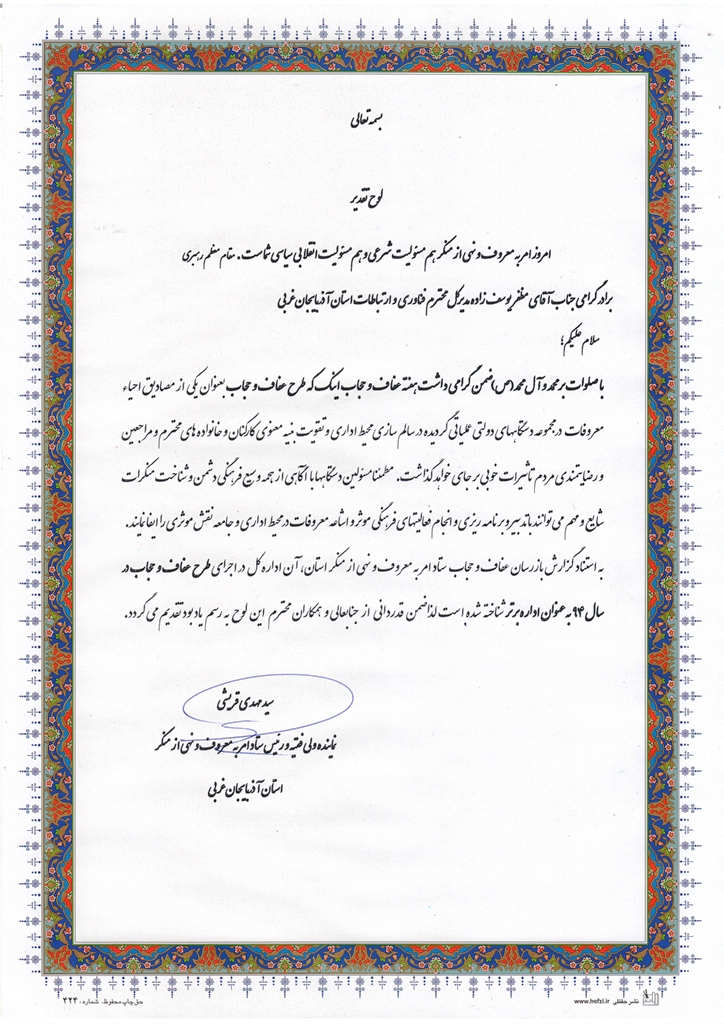 بسمه تعالی
لوح تقدیر
امروز امر به معروف و نهی از منکر هم مسئولیت شرعی و هم مسئولیت انقلابی سیاسی شماست. مقام معظم رهبری
برادر گرامی جناب آقای مظفر یوسف زاده مدیرکل محترم فناوری و ارتباطات استان آذربایجان غربی
سلام علیکم؛
با صلوات بر محمد و آل محمد (ص) ضمن گرامی داشت هفته عفاف و حجاب اینک که طرح عفاف و حجاب بعنوان یکی از مصادیق احیاء
معروفات در مجموعه دستگاههای دولتی عملیاتی گردیده در سالم سازی محیط اداری و تقویت بنیه معنوی کارکنان و خانواده های محترم و مراجعین
و رضایتمندی مردم تاثیرات خوبی بر جای خواهد گذاشت. مطمئنا مسئولین دستگاهها با آگاهی از هجمه وسیع فرهنگی دشمن و شناخت منکرات
شایع و مهم می توانند با تدبیر و برنامه ریزی و انجام فعالیتهای فرهنگی موثر و اشاعه معروفات در محیط اداری و جامعه نقش موثری را ایفا نمایند.
به استناد گزارش بازرسان عفاف و حجاب ستاد امر به معروف و نهی از منکر استان، آن اداره کل در اجرای طرح عفاف و حجاب در
سال ۹۴ به عنوان اداره برتر شناخته شده است لذا ضمن قدردانی از جنابعالی و همکاران محترم این لوح به رسم یادبود تقدیم می گردد.
سید مهدی قریشی
نماینده ولی فقیه و رئیس ستاد امر به معروف و نهی از منکر
استان آذربایجان غربی
نشر حفظی www.hefzi.ir
حق چاپ محفوظ. شماره: ۴۲۴